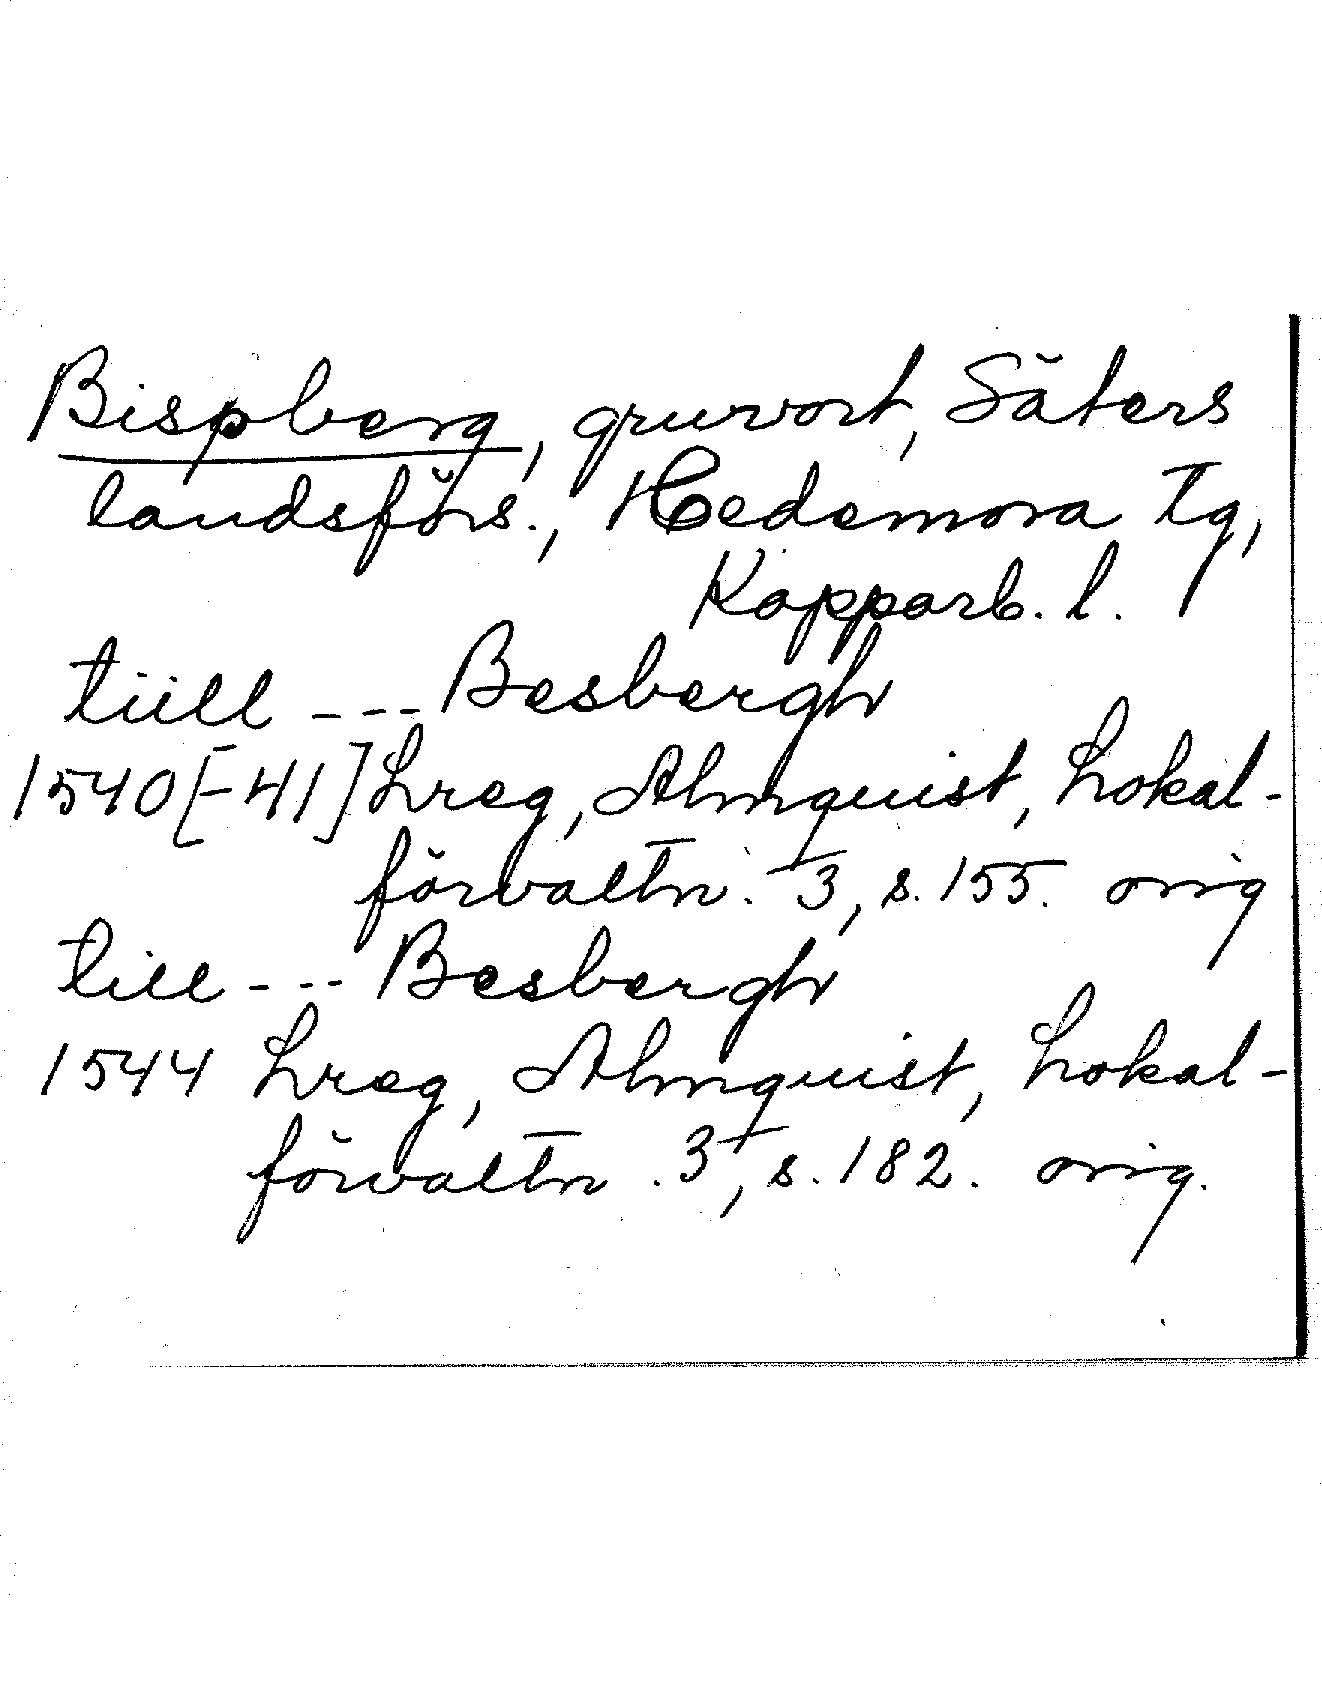 Bispberg, gruvort, Säters
landsförs., Hedemora tg,
Kopparb. l.
tiill --- Besbergh
1540[-41] Lreg, Almquist, Lokal-
förvaltn. 3, s. 155. orig
till --- Besbergh
1544 Lreg, Almquist, Lokal-
förvaltn. 3, s. 182. orig.